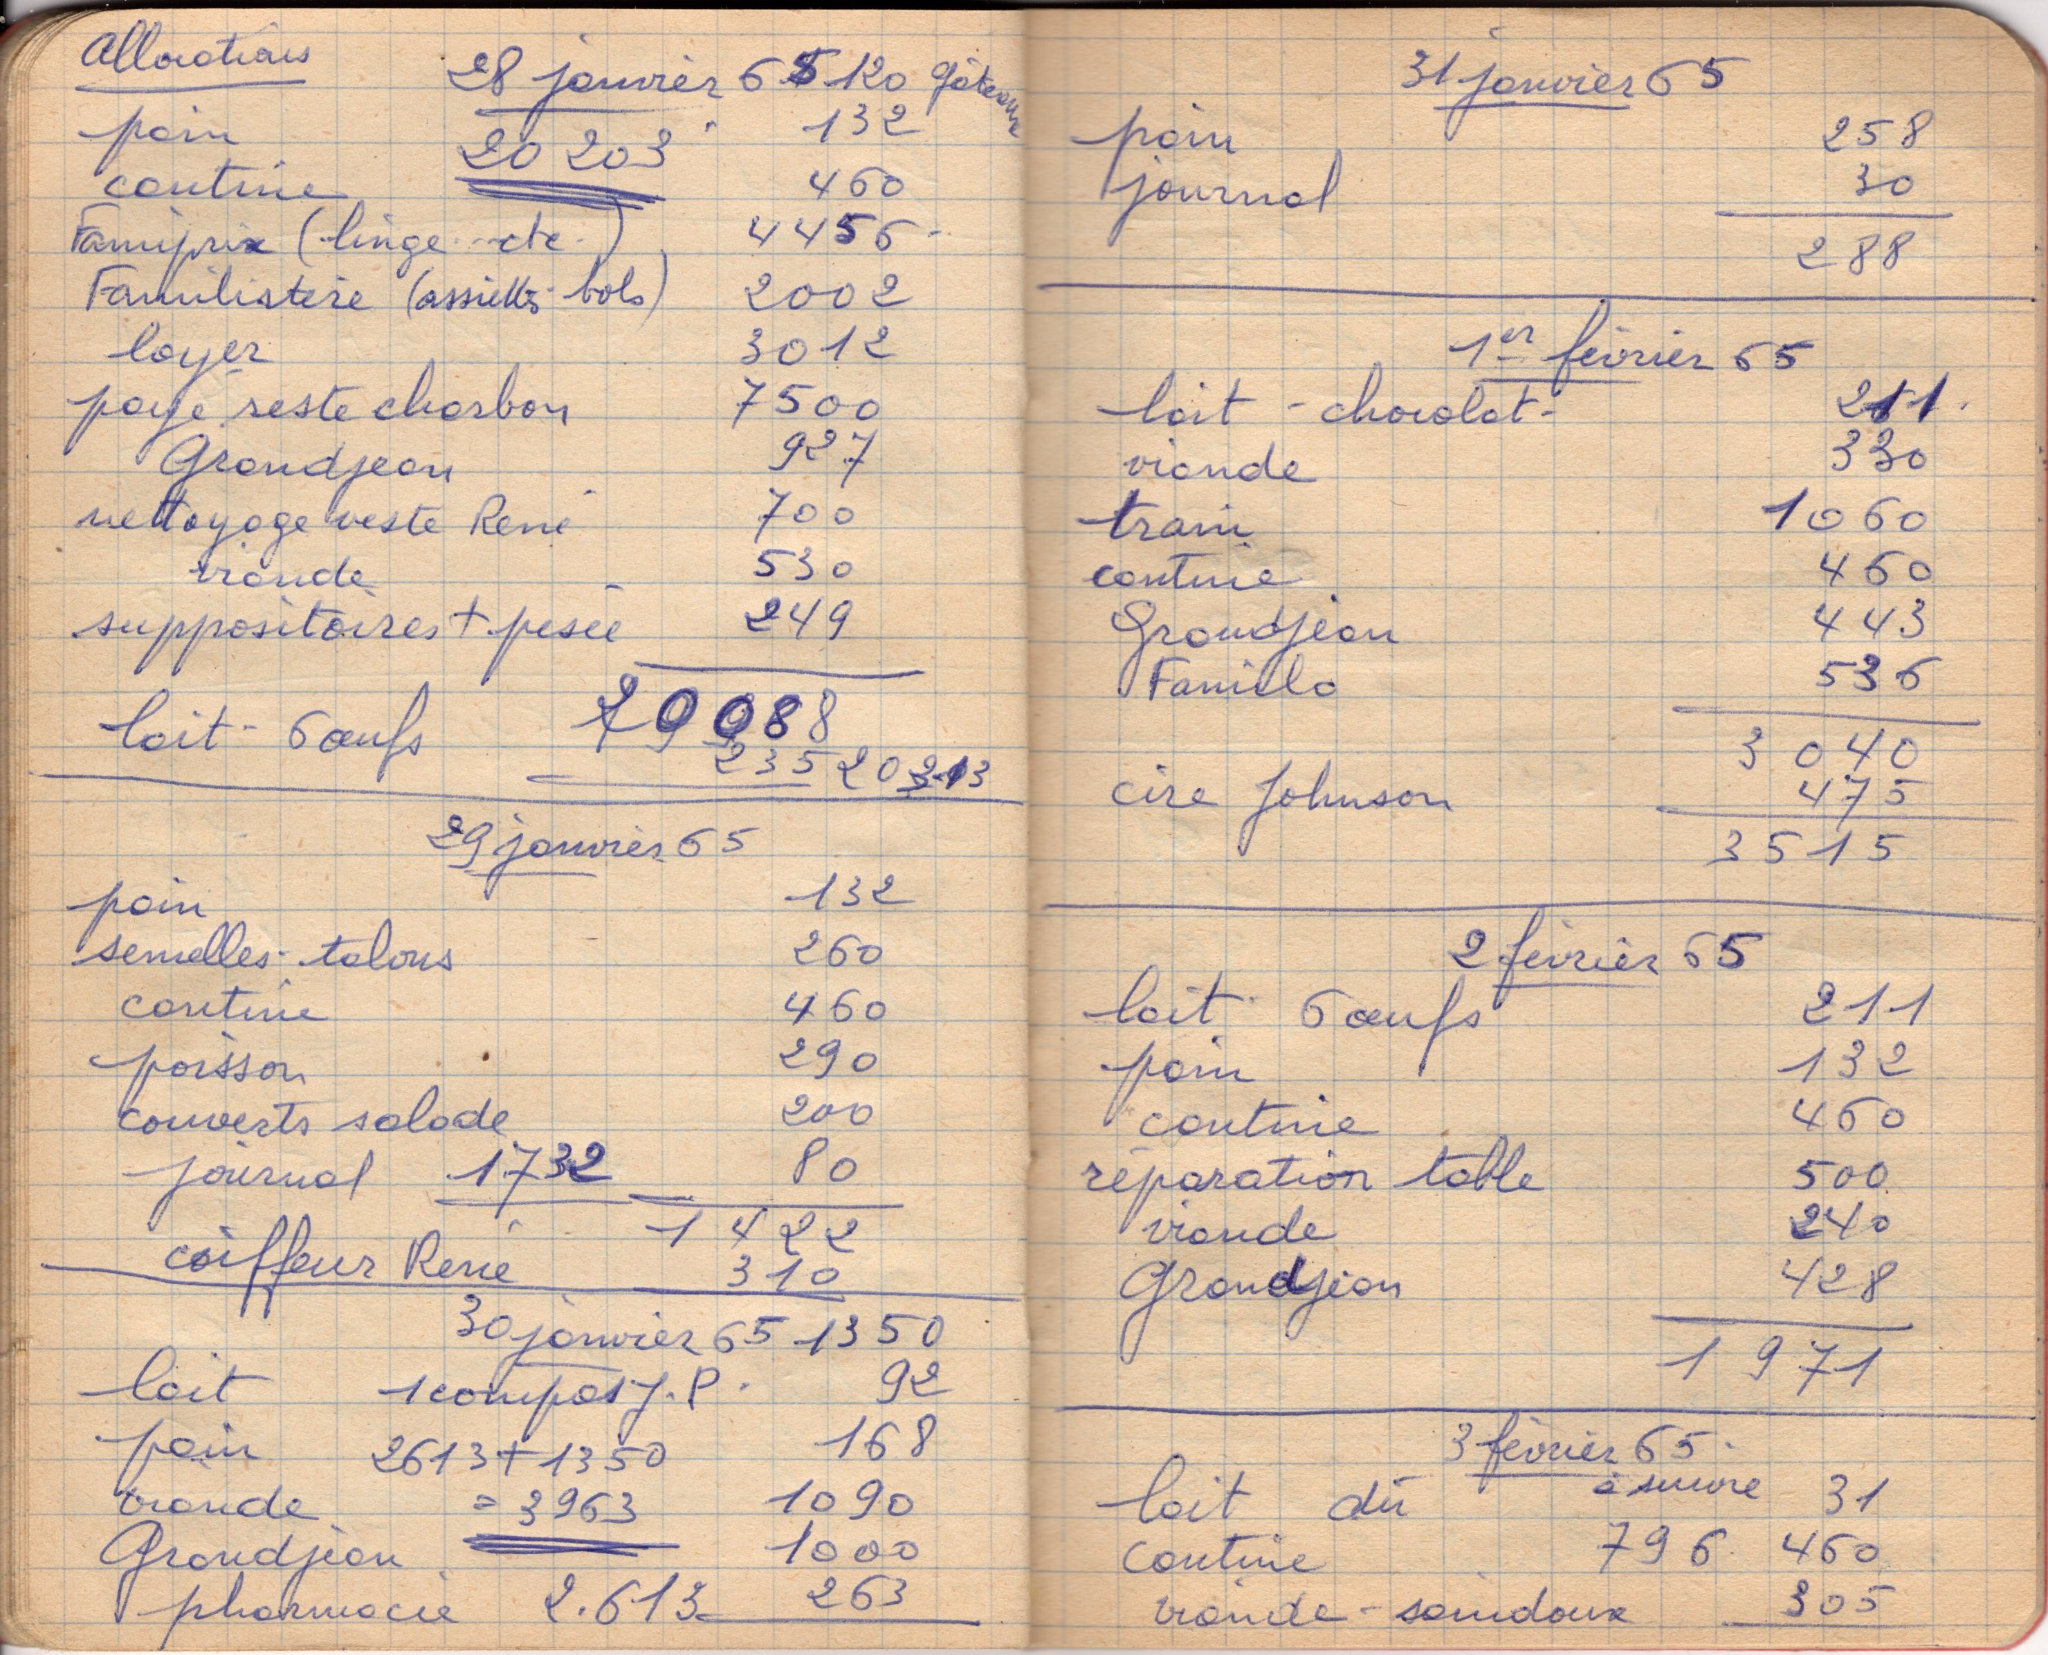 Allocations
28 janvier 65 120 gâteaux
pain 132
20 203
cantine 460
Famiprix (linge etc.) 4456
Familistère (assiettes bols) 2002
loyer 3012
paye reste charbon 7500
Grandjean 927
nettoyage veste René 700
viande 530
suppositoires + pesée 249
20088
lait - 6 œufs 235 20
29 janvier 65
pain 132
semelles - talons 260
cantine 460
poisson 290
couverts salade 200
journal 1732 80
1422
coiffeur René 310
30 janvier 65 1350
lait 1 compas J.P. 92
pain 2613 + 1350 168
viande = 3963 1090
Grandjean 1000
pharmacie 2.613 263
31 janvier 65
pain 258
journal 30
288
1er février 65
lait - chocolat - 211
viande 330
train 1060
cantine 460
Grandjean 443
Familo 536
3040
cire Johnson 475
3515
2 février 65
lait 6 œufs 211
pain 132
cantine 460
réparation table 500
viande 240
Grandjean 428
1971
3 février 65
lait dû à suivre 31
cantine 796 460
viande - saindoux 305